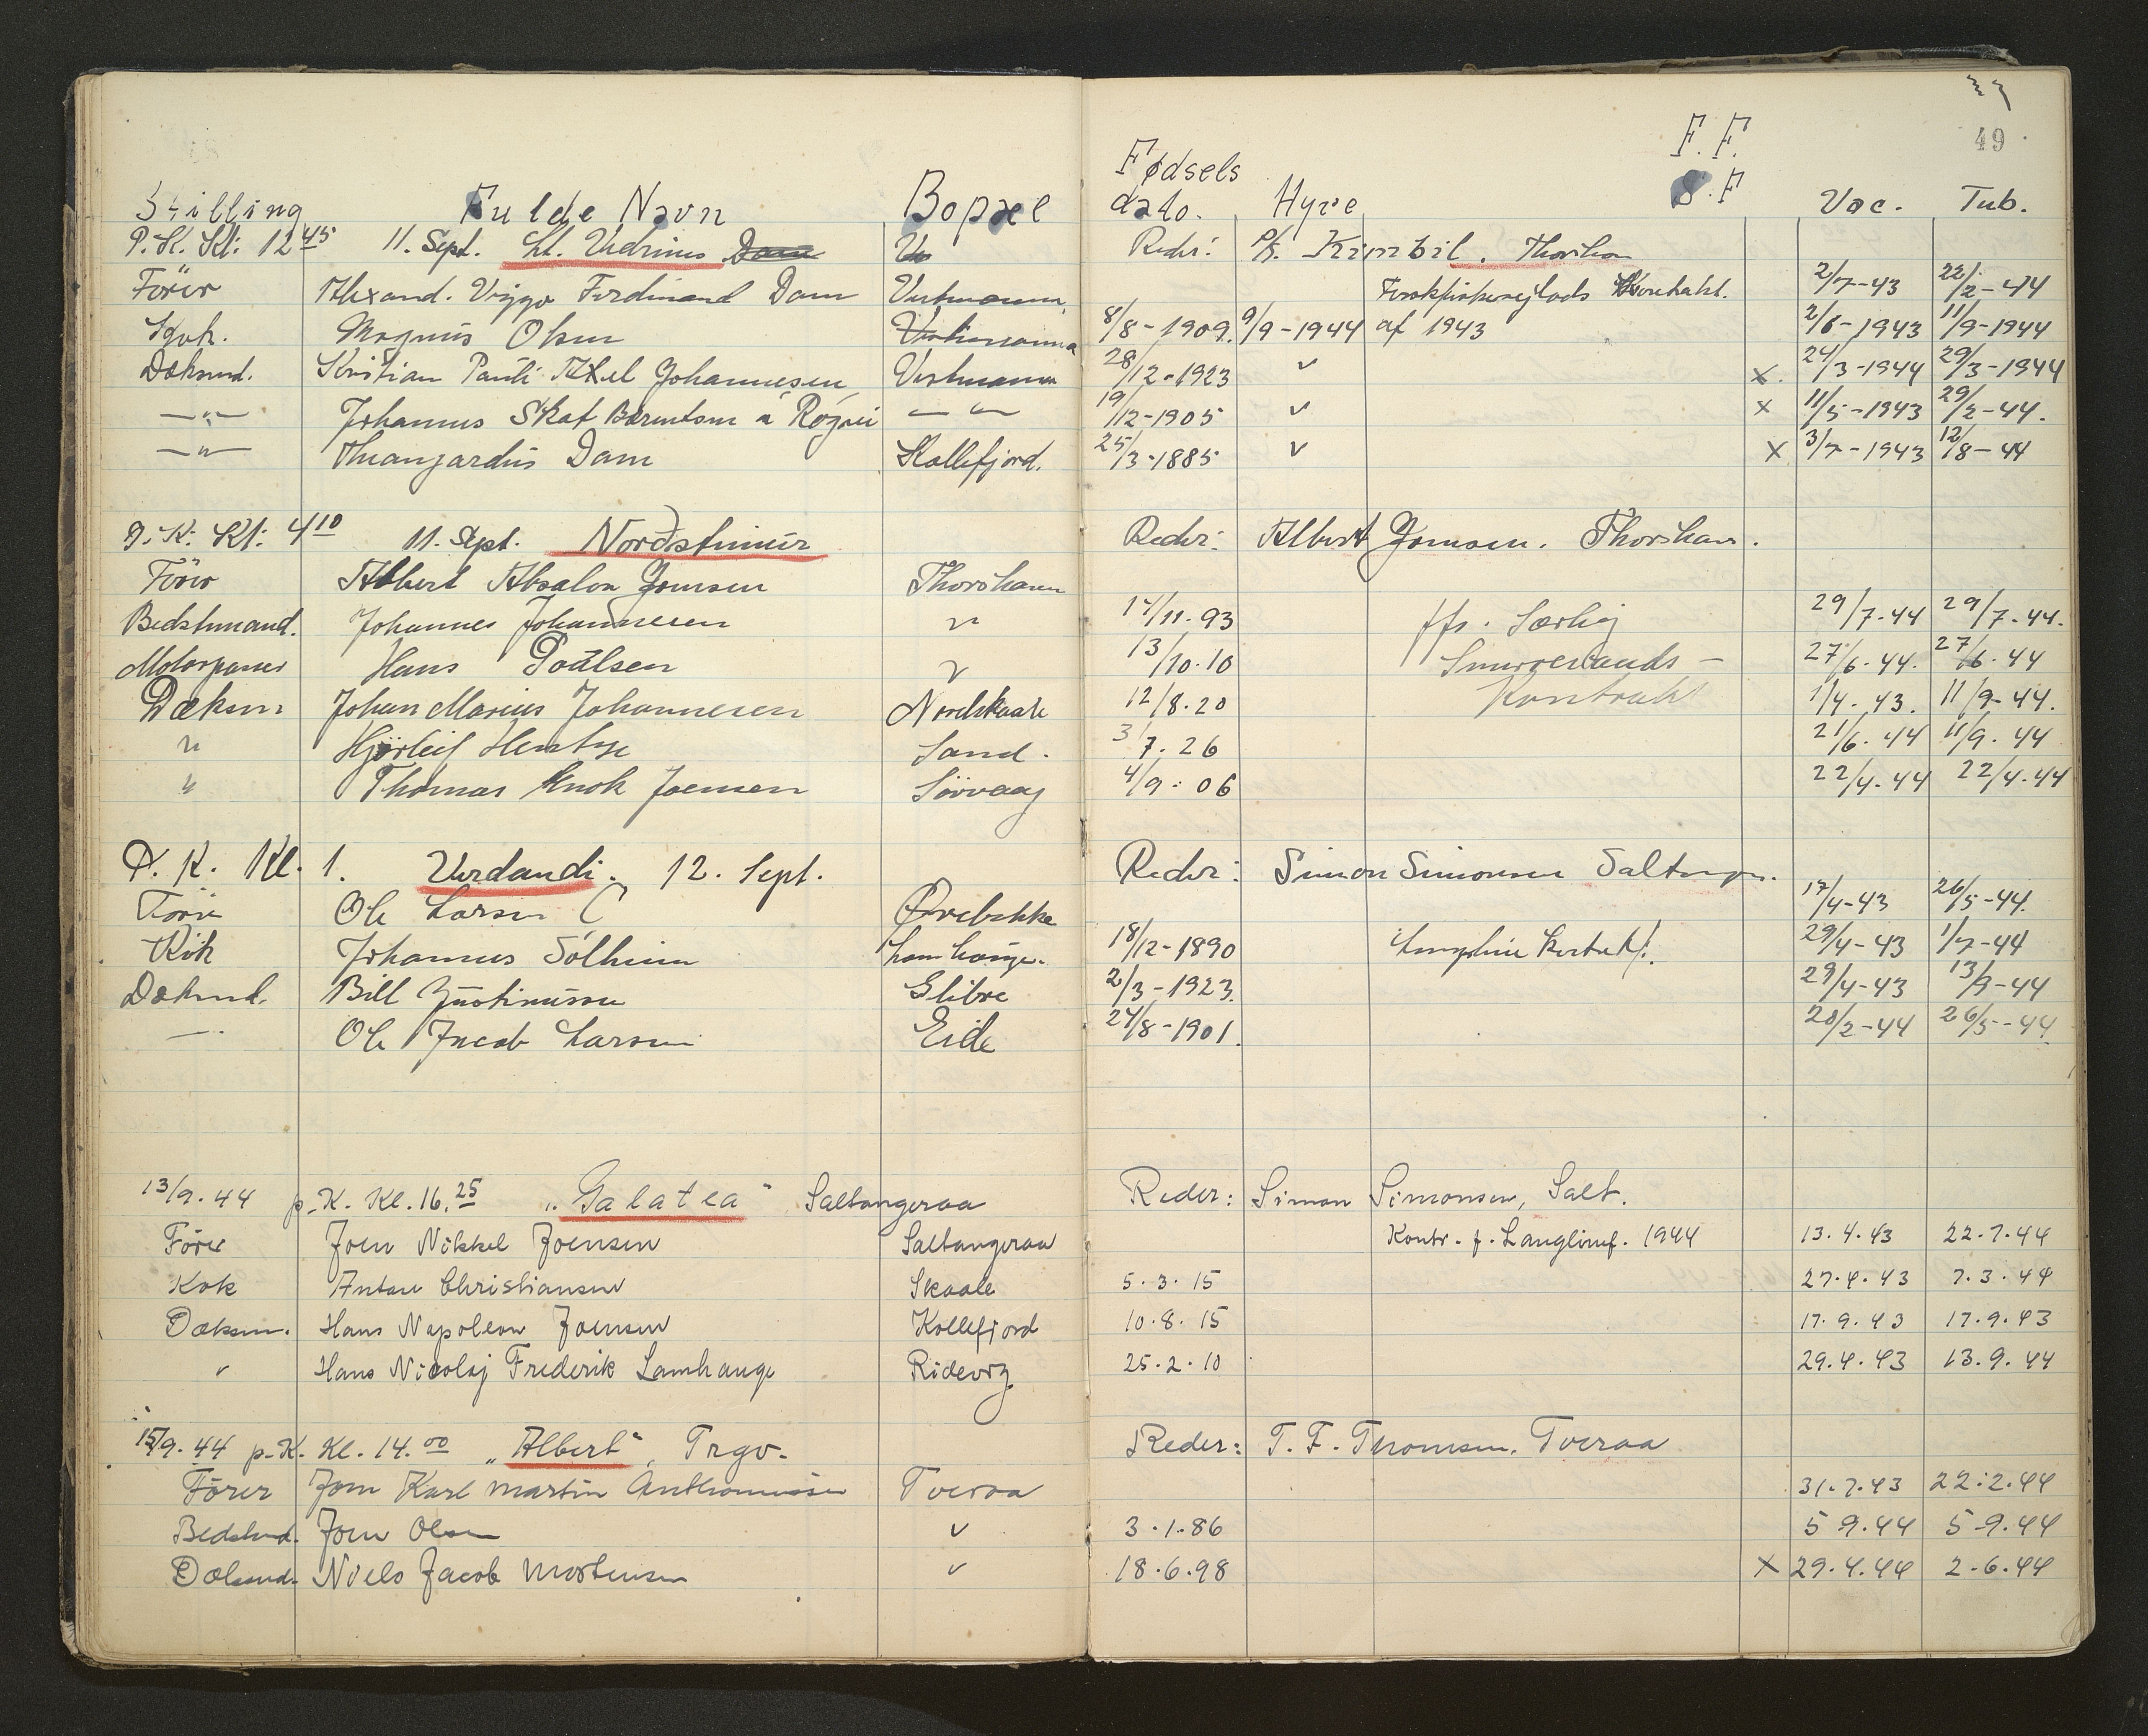 49
F.F.
Stilling Fulde Navn Bopæl Fødsels dato. Hyre S.F Vac. Tub.
P.K. Kl: 12 45 11. Sept. Reder: P/S. Kimbil. Thorshavn
Förer Alexand. Viggo Ferdinand Dam Vestmanna 2/7-43 22/2-44
Kok. Magnus Olsen Vestmanna 8/8-1909. 9/9-1944 af 1943 2/6-1943 11/9-1944
Dæksmd. Kristian Pauli Axel Johannesen Vestmanna 28/12-1923 " X. 24/3-1944 29/3-1944
—"— Johannes Skat Barentsen á Rógvi — " — 19/12-1905 " X 11/5-1943 29/2-44.
—"— Dam Kollefjord. 25/3-1885 " X 3/7-1943 12/8-44
P.K. Kl: 4 10 11. Sept. Nordstjmur Reder: Albert Joensen. Thorshavn.
Förer Albert Absalon Joensen Thorshavn
Bedstmand. Johannes Johannesen " 17/11.93 ffs. Særlig 29/7.44 29/7.44.
Motorpasser Hans Poulsen " 13/10.10 Snurrevaads- 27/6.44. 27/6.44
Dæksm. Johan Marius Johannesen Nordskaale 12/8.20 Kontrakt 1/4.43. 11/9-44.
" Hjörleif Hentze Sand. 3/7.26 21/6.44 11/9.44
" Thomas Knok Joensen Sörvaag 4/9.06 22/4.44 22/4.44
P.K. Kl. 1. Verdandi. 12. Sept. Reder: Simon Simonsen
Förer Ole Larsen 17/4-43 26/5-44.
Kok Johannes Sólheim Lamhauge. 18/12-1890 29/4-43 1/7-44
Dæksmd. Bill Justinussen Glibre 2/3-1923. 29/4-43 13/9-44
— Ole Jacob Larsen Eide 24/8-1901. 28/2-44 26/5-44.
13/9.44 p.K. Kl. 16.25 "Galatea" Saltangeraa Reder: Simon Simonsen, Salt.
Förer Joen Nikkel Joensen Saltangeraa Kontr. f. Langlinef. 1944 13.4.43 22.7.44
Kok Anton Christiansen Skaale 5.3.15 27.4.43 7.3.44
Dæksm. Hans Napoleon Joensen Kollefjord 10.8.15 17.9.43 17.9.43
" Hans Nicolaj Frederik Lamhauge Ridevig 25.2.10 29.4.43 13.9.44
15/9.44 p.K. Kl. 14.00 "Albert", Trgv. Reder: T.F. Thomsen. Tveraa
Förer Joen Karl Martin Tveraa 31.7.43 22.2.44
Bedstmd. Joen Olsen " 3.1.86 5.9.44 5.9.44
Dæksmd. Niels Jacob Mortensen " 18.6.98 X 29.4.44 2.6.44